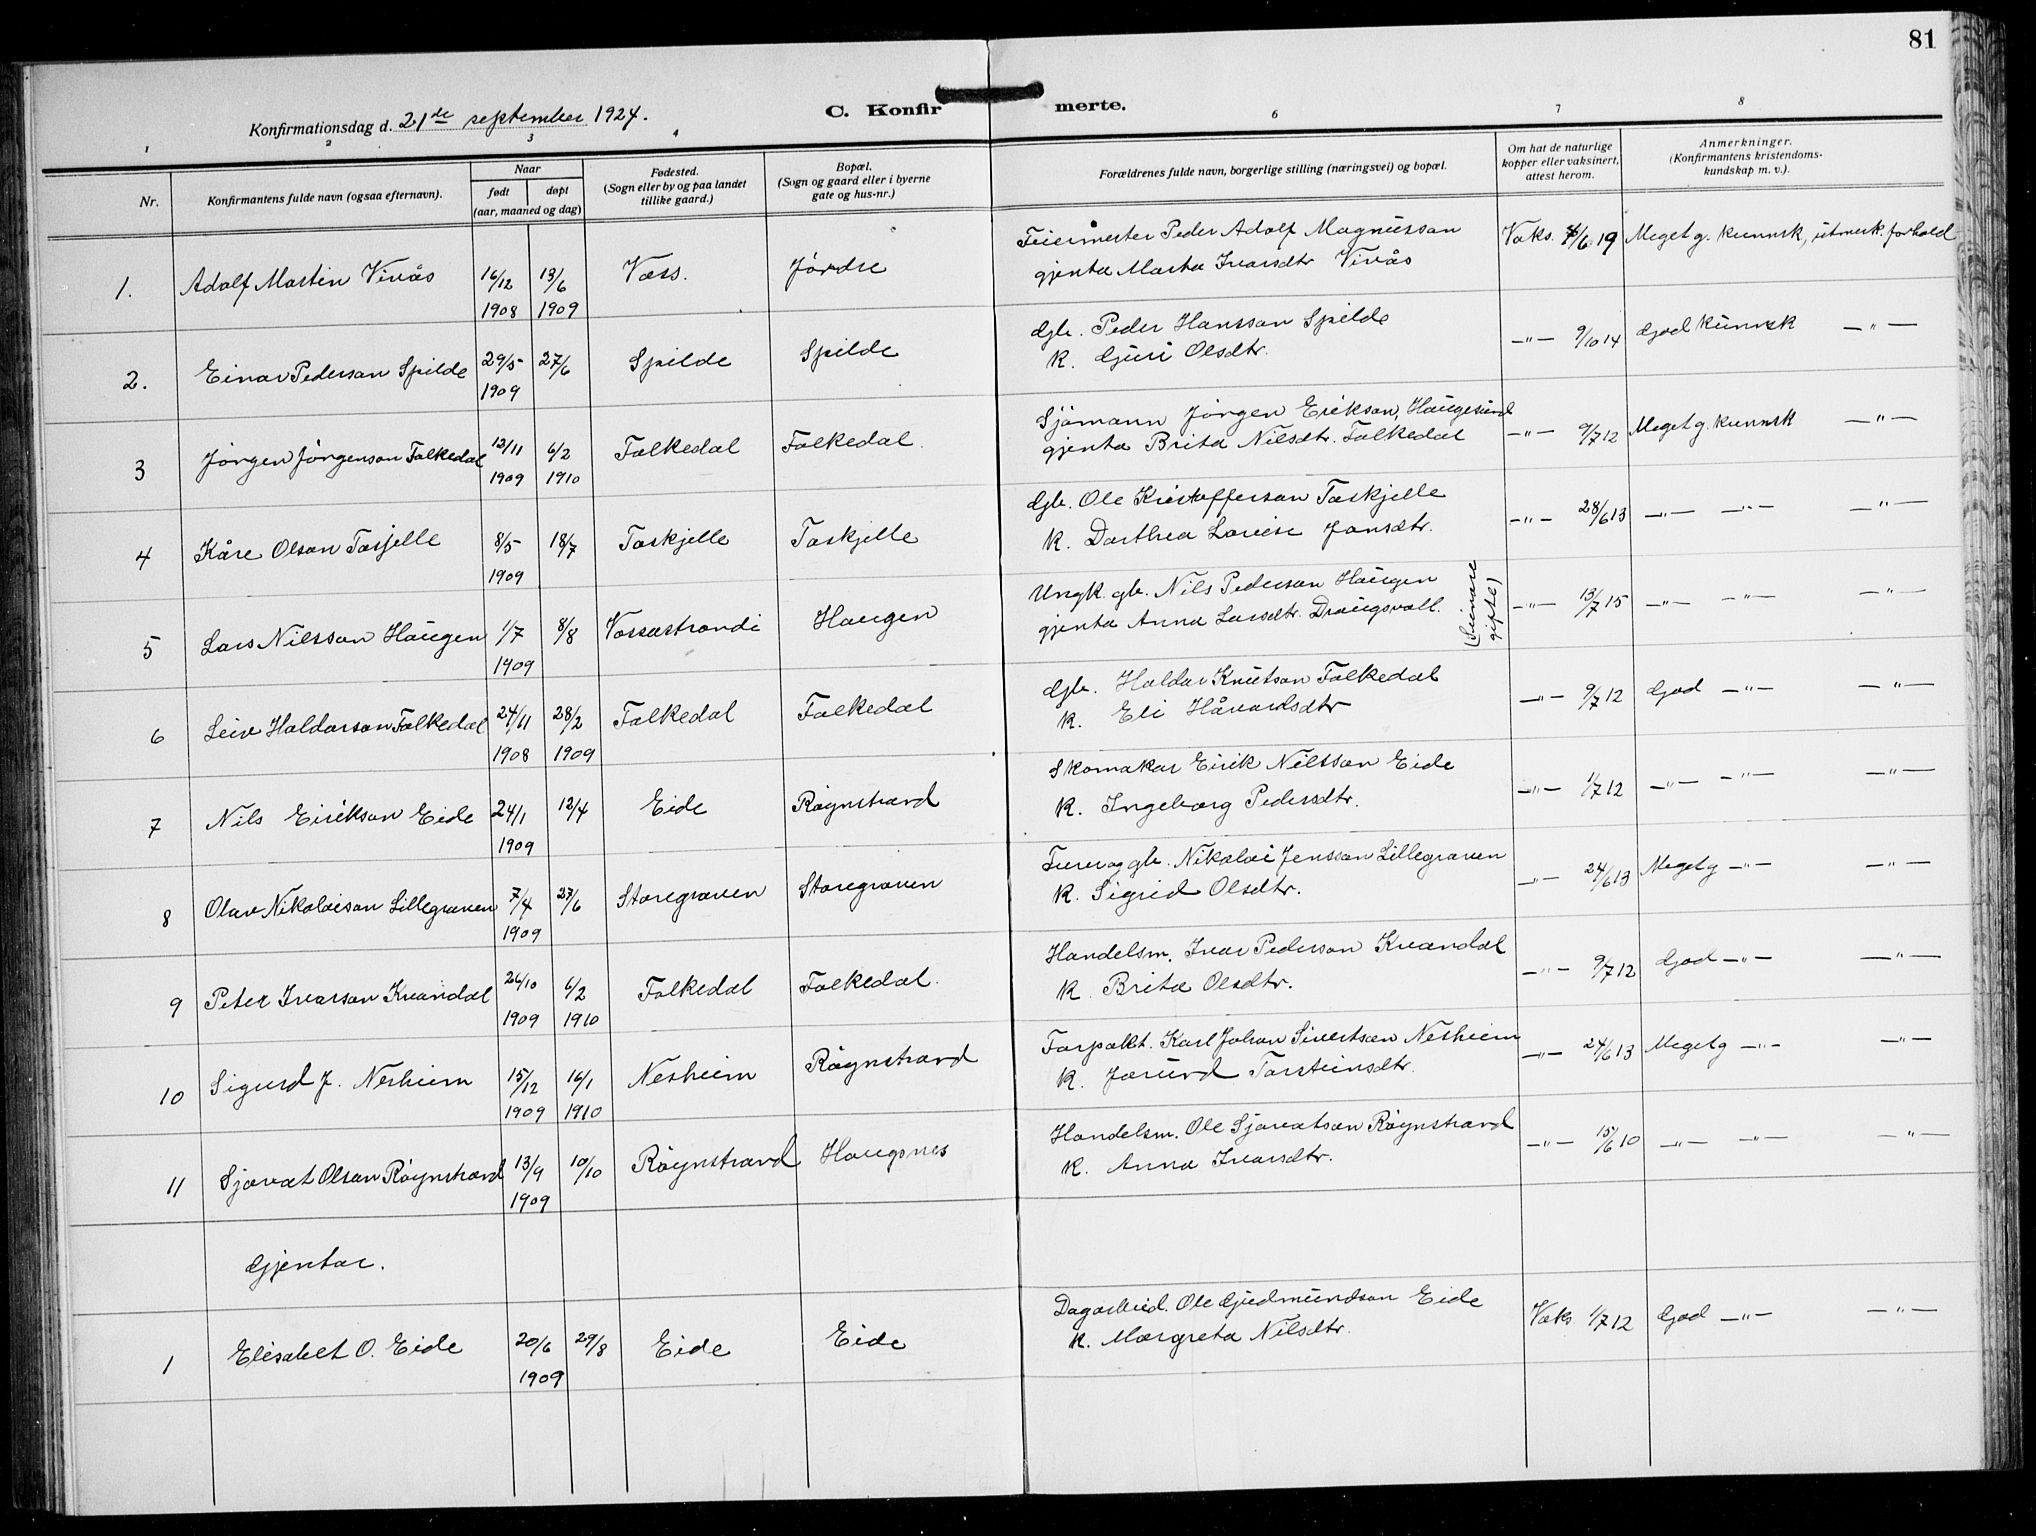 81
Konfirmationsdag d. 21de september 1924.
C. Konfirmerte.
1 2 3 4 6 7 8
Nr.
Konfirmantens fulde navn (ogsaa efternavn).
Naar
født døpt
(aar, maaned og dag)
Fødested.
(Sogn eller by og paa landet
tillike gaard.)
Bopæl.
(Sogn og gaard eller i byerne
gate og hus-nr.)
Forældrenes fulde navn, borgerlige stilling (næringsvei) og bopæl.
Om hat de naturlige
kopper eller vaksinert,
attest herom.
Anmerkninger.
(Konfirmantens kristendoms-
kundskap m. v.).
1. Adolf Martin Vivås 16/12 1908 13/6 1909 Voss. Jördre
Feiermester Peder Adolf Magnusson
gjenta Marta Ivarsdtr Vivås
Vaks. /6 19 Meget g. kunnsk, utmerk. forhold
2. Einar Pederson Spilde 29/5 1909 27/6 Spilde Spilde
Gbr. Peder Hansson Spilde
K. Guri Olsdtr.
—"— 9/10 14 God kunnsk —"—
3 Jørgen Jørgenson Folkedal 12/11 1909 6/2 1910 Folkedal Folkedal.
Sjömann Jørgen Erikson, Haugesund
gjenta Brita Nilsdtr. Folkedal
—"— 9/7 12 Meget g. kunnsk —"—
4 Kåre Olson Tosjelle 8/5 1909 18/7 Toskjelle Toskjelle
Gbr. Ole Kristofferson Toskjelle
K. Dorthea Lovise Jonsdtr.
—"— 28/6 13 —"— —"— —"—
5 Lars Nilsson Haugen 1/7 1909 8/8 Vossestrandi Haugen
Ungk. gbr. Nils Pederson Haugen
gjenta Anna Larsdtr. Draugsvoll.
(Seinare
gifte)
—"— 13/7 15 —"— —"— —"—
6 Leiv Haldorson Folkedal 24/11 1908 28/2 1909 Folkedal Folkedal
Gbr. Haldor Knutson Folkedal
K. Eli Håvardsdtr
—"— 9/7 12 God —"— —"—
7 Nils Eirikson Eide 24/1 1909 12/4 Eide Röynstrand
Skomakar Eirik Nilsson Eide
K. Ingeborg Pedersdtr.
—"— 1/7 12 —"— —"— —"—
8 Olav Nikolaison Lillegraven 7/4 1909 27/6 Storegraven Storegraven
Furer og gbr. Nikolai Jensson Lillegraven
K. Sigrid Olsdtr.
—"— 24/6 13 Meget g —"— —"—
9 Peter Ivarson Kvandal 26/10 1909 6/2 1910 Folkedal Folkedal.
Handelsm. Ivar Pederson Kvandal
K. Brita Olsdtr.
—"— 9/7 12 God —"— —"—
10 Sigurd J. Nesheim 15/12 1909 16/1 1910 Nesheim Röynstrand
Forpakt. Karl Johan Sivertsen Nesheim
K. Jorund Torsteinsdtr.
—"— 24/6 13 Meget g —"— —"—
11 Sjovat Olson Röynstrand 13/9 1909 10/10 Röynstrand Haugsnes
Handelsm. Ole Sjovatson Röynstrand
K. Anna Ivarsdtr.
—"— 15/6 10 —"— —"— —"—
Gjentor.
1 Elisabet O. Eide 20/6 1909 29/8 Eide Eide
Dagarbeid. Ole Gudmundson Eide
K. Margreta Nilsdtr.
Vaks 1/7 12 God —"— —"—